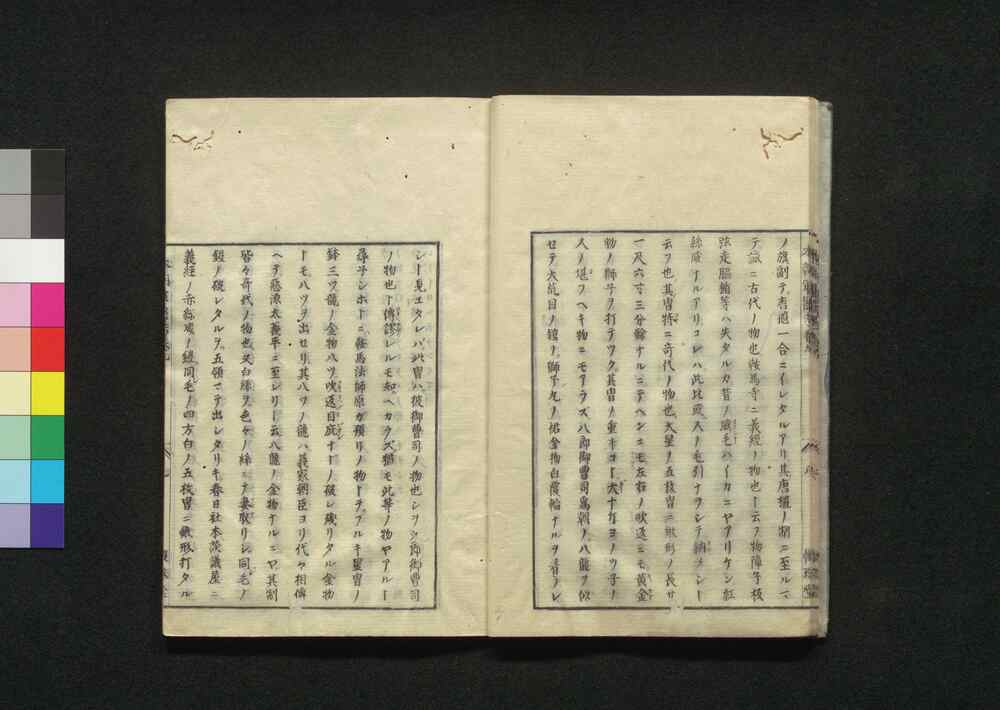 ノ旗副テ書直一合ニイレタルアリ其唐櫃ノ制ニ至ルマ
テ誠ニ古代ノ物也鞍馬寺ニ義經ノ物也ト云フ物障子板
弦走脇楯等ハ失タルカ昔ノ威毛ハイカニヤアリケン紅
絲威ナルアリコレハ此比或人ノ毛引ナヲシテ納メシト
云フ也其冑特ニ奇代ノ物也大星ノ五枚冑ニ鍬形ノ長サ
一尺六寸三分餘ナルニテヘンニモ左右ノ吹返ニモ黄金
物ノ獅子ヲ打テツク其冑ノ重キコト大ナヨノツ子ノ
人ノ堪フヘキ物ニモアラス八郎御曹司爲朝ノ八龍ヲ似
セテ大荒目ノ鎧ノ獅子丸ノ裾金物白覆輪ナルヲ着ソレ
シト見ユタレハ此冑ハ彼御曹司ノ物也シヲ九郎御曹司
ノ物也ト傳謬レルモ知ヘカラズ猶モ此等ノ物ヤアルト
尋子シホトニ鞍馬法師原カ預リノ物トテフルキ星冑ノ
鉢三ツ龍ノ金物八ツ吹返目庇ナトノ破レ殘リタル金物
トモ八ツヲ出セリ其八ツノ龍ハ義家朝臣ヨリ代々相傳
ヘテ惡源太義平ニ至レリト云八龍ノ金物ナルニヤ其制
皆々奇代ノ物也又白絲ヲ色々ノ絲ニテ妻取リシ同毛ノ
鎧ノ破レタルヲ五領マテ出レタリキ春日社本談議屋ニ
義經ノ赤絲威ノ鎧同毛ノ四方白ノ五枚冑ニ鍬形打タル